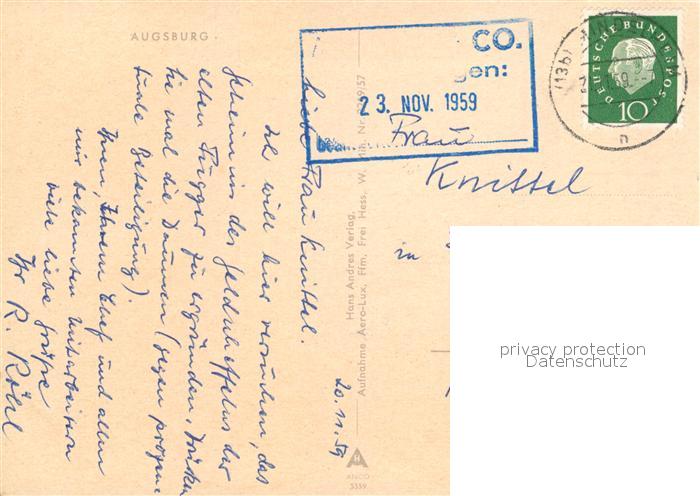 AUGSBURG
CO.
gen:
23. NOV. 1959
Frau
Knittel
in
DEUTSCHE BUNDESPOST
10
(13b)
59
n
20.11.59
Liebe Frau Knittel.
Ich will hier versuchen, das
Geheimnis des Geldscheffelns der
alten Fugger zu ergründen. Drücken
Sie mal die Daumen (gegen prozen
tuale Beteiligung).
Ihnen, Ihrem Chef und allen
mir bekannten Mitarbeitern
viele liebe Grüße
Ihr R. Röhl
Hans Andres Verlag,
Aufnahme Aero-Lux, Ffm, Frei Hess, W.
ANCO
5359
privacy protection
Datenschutz